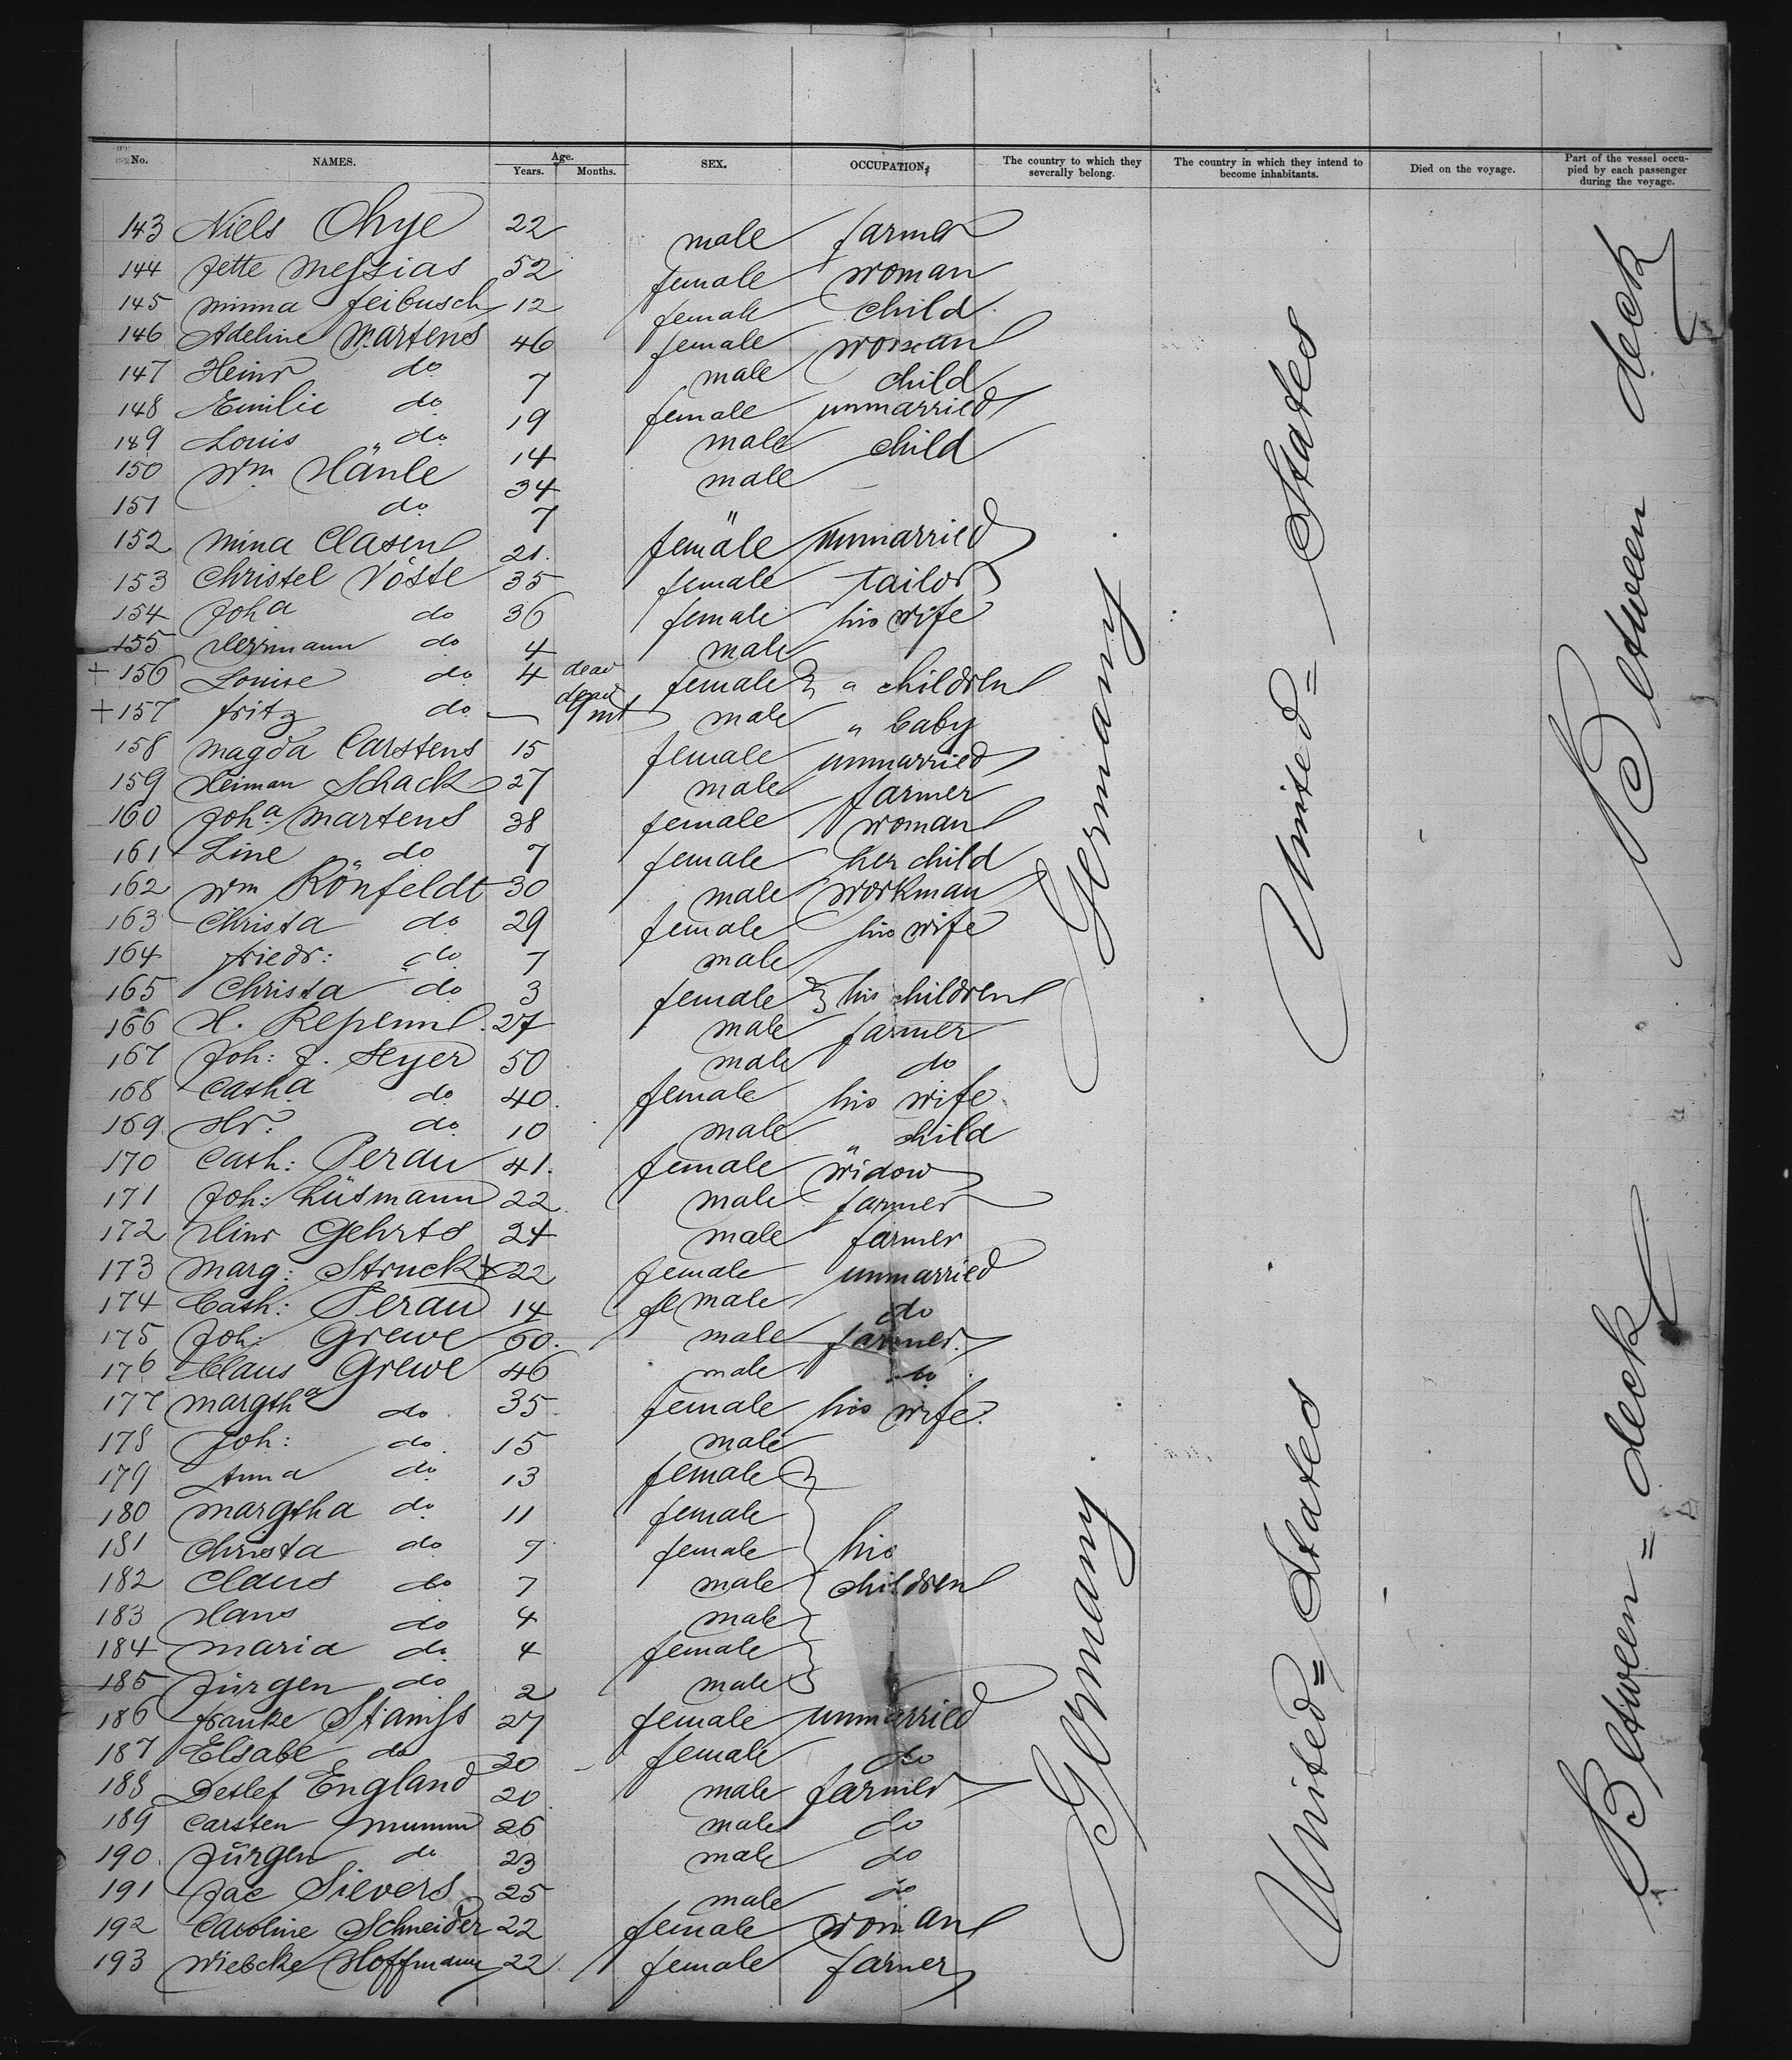 No. NAMES. Age. Years. Months. SEX. OCCUPATION, The country to which they severally belong. The country in which they intend to become inhabitants. Died on the voyage. Part of the vessel occupied by each passenger during the voyage.
143 Niels Ohye 22 male farmer
144 Jette Messias 52 female woman
145 Minna Feibusch 12 female child
146 Adeline Martens 46 female woman
147 Heinr do 7 male child
148 Emilie do 19 female unmarried
149 Louis do 14 male child
150 Wm Hänle 34 male
151 do 7 "
152 Mina Clasen 21. female unmarried
153 Christel Vöste 35 female tailor
154 Joha do 36 female his wife
155 Herrmann do 4 male
+ 156 Louise do 4 dead female " children
+ 157 Fritz do — dead 9 mt male " baby
158 Magda Carstens 15 female unmarried
159 Heiman Schack 27 male farmer
160 Joha Martens 38 female woman
161 Line " do 7 female her child
162 Wm Rönfeldt 30 male workman
163 Christa do 29 female his wife
164 Friedr: do 7 male
165 Christa do 3 female his children
166 H. Repenn 27 male farmer
167 Joh: J. Heyer 50 male do
168 Catha do 40 female his wife
169 Hr: do 10 male " child
170 Cath: Perau 41. female widow
171 Joh: Lüsmann 22 male farmer
172 Hinr Gehrts 24 male farmer
173 Marg: Struck 22 female unmarried
174 Cath: Perau 14 female do
175 Joh: Grewe 60. male farmer.
176 Claus Grewe 46 male do
177 Margtha do 35 female his wife.
178 Joh: do 15 male
179 Anna do 13 female
180 Margtha do 11 female
181 Christa do 7 female his
182 Claus do 7 male children
183 Hans do 4 male
184 Maria do 4 female
185 Jürgen do 2 male
186 Frauke 27 female unmarried
187 Elsabe do 20 female do
188 Detlef England 20 male farmer
189 Carsten Mumm 26 male do
190 Jürgen do 23 male do
191 Jac Sievers 25 male do
192 Caroline Schneider 22 female woman
193 Wiebcke Hoffmann 22 female farmer
Germany
United = States
Between deck
Germany
United = States
Between = deck